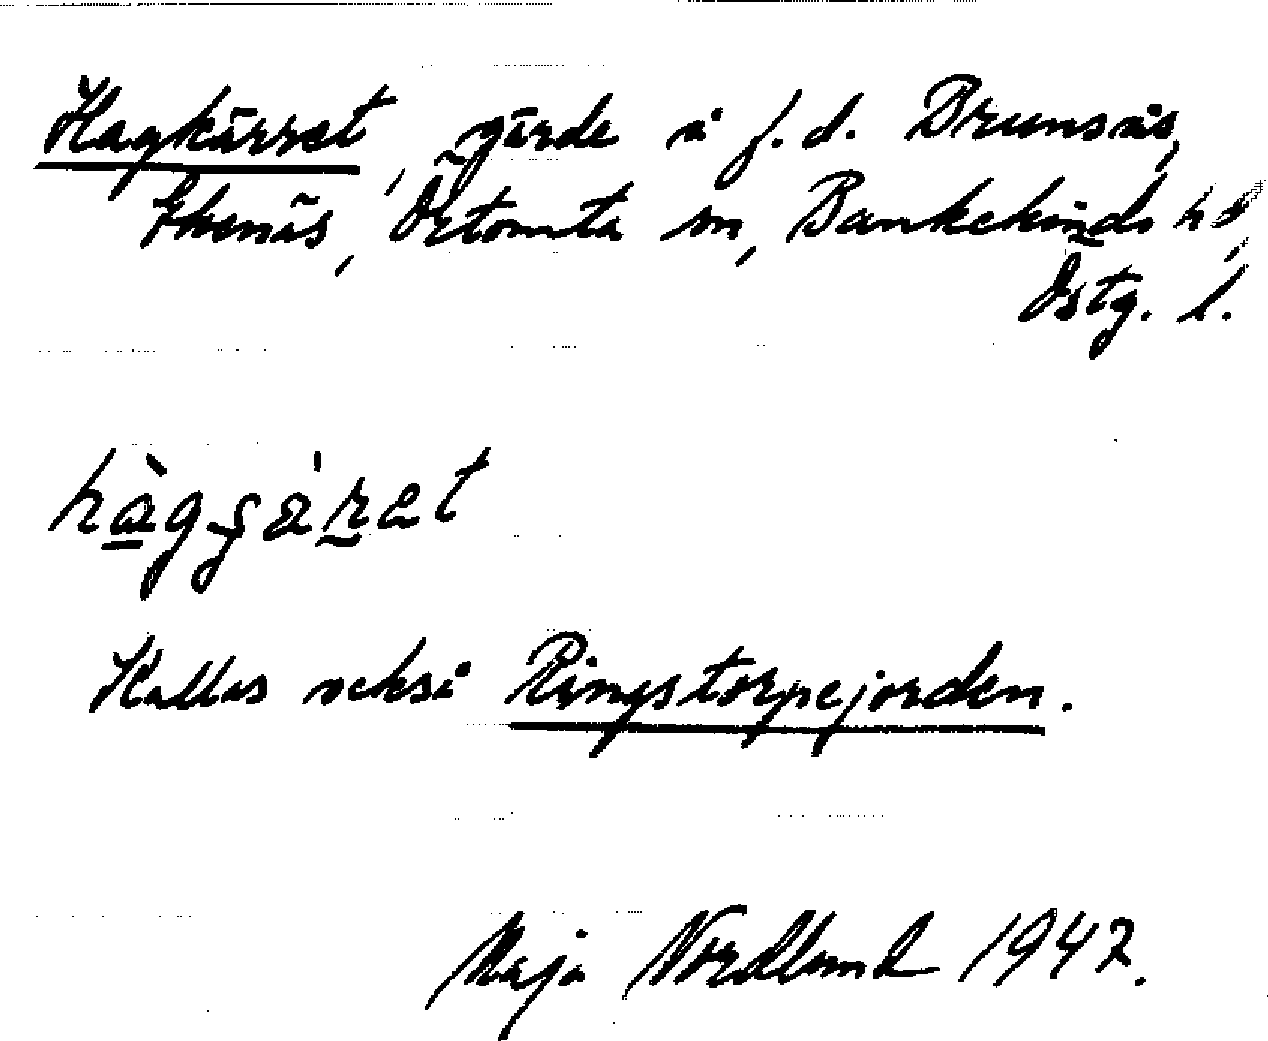 Hagkärret, gärde å f.d. Brunsås,
Ekenäs, Örtomta sn, Bankekinds hd,
Östg. l.
hàgçä̀ret
Kallas också Ringstorpejorden.
Maja Nordlund 1947.